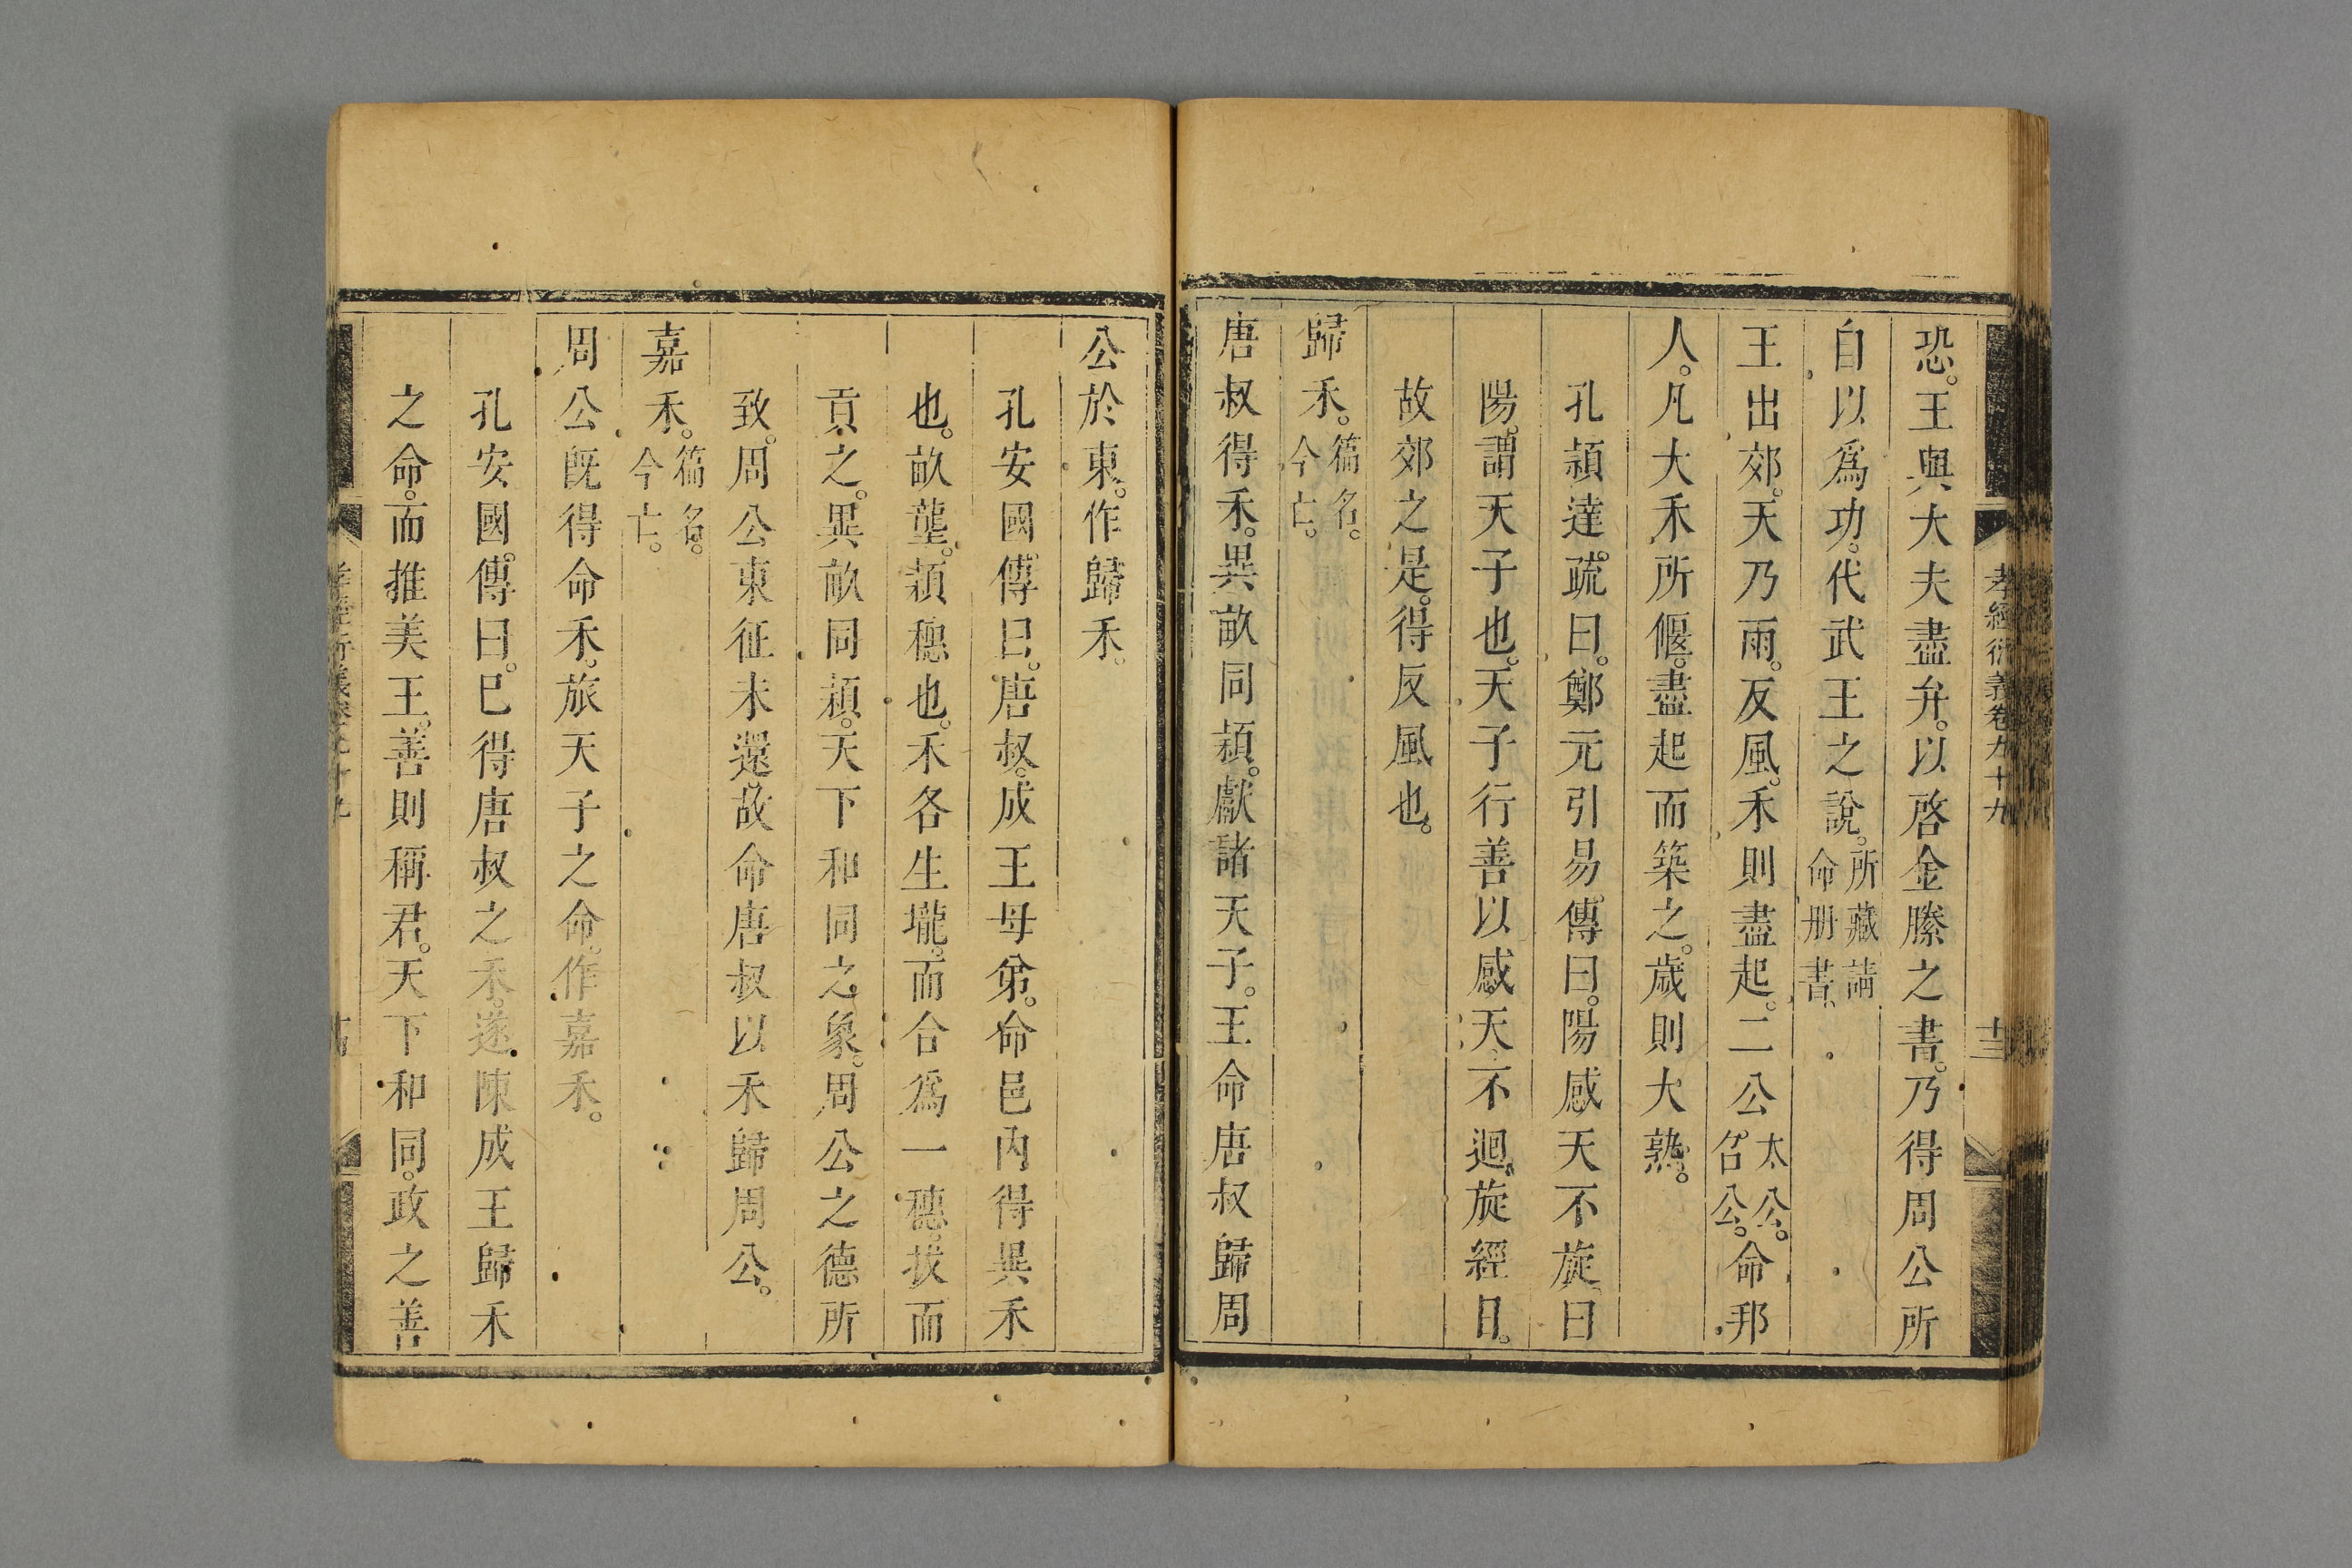 孝經衍義卷九十九
十三
恐。王與大夫盡弁。以啓金縢之書。乃得周公所
自以爲功。代武王之說。所藏請命册書。
王出郊。天乃雨。反風。禾則盡起。二公太公。召公。命邦
人。凡大禾所偃。盡起而築之。歲則大熟。
孔頴達疏曰。鄭元引易傳曰。陽感天不旋日
陽。謂天子也。天子行善以感天。不迴旋經日。
故郊之是。得反風也。
歸禾。篇名。今亡。
唐叔得禾。異畝同穎。獻諸天子。王命唐叔歸周
公於東。作歸禾。
孔安國傳曰。唐叔。成王母弟。命邑內得異禾
也。畝壟。穎穗也。禾各生壠。而合爲一穗。拔而
貢之。異畝同穎。天下和同之象。周公之德所
致。周公東征未還。故命唐叔以禾歸周公。
嘉禾。篇名。今亡。
周公旣得命禾。旅天子之命。作嘉禾。
孔安國傳曰。已得唐叔之禾。遂陳成王歸禾
之命。而推美王。善則稱君。天下和同。政之善